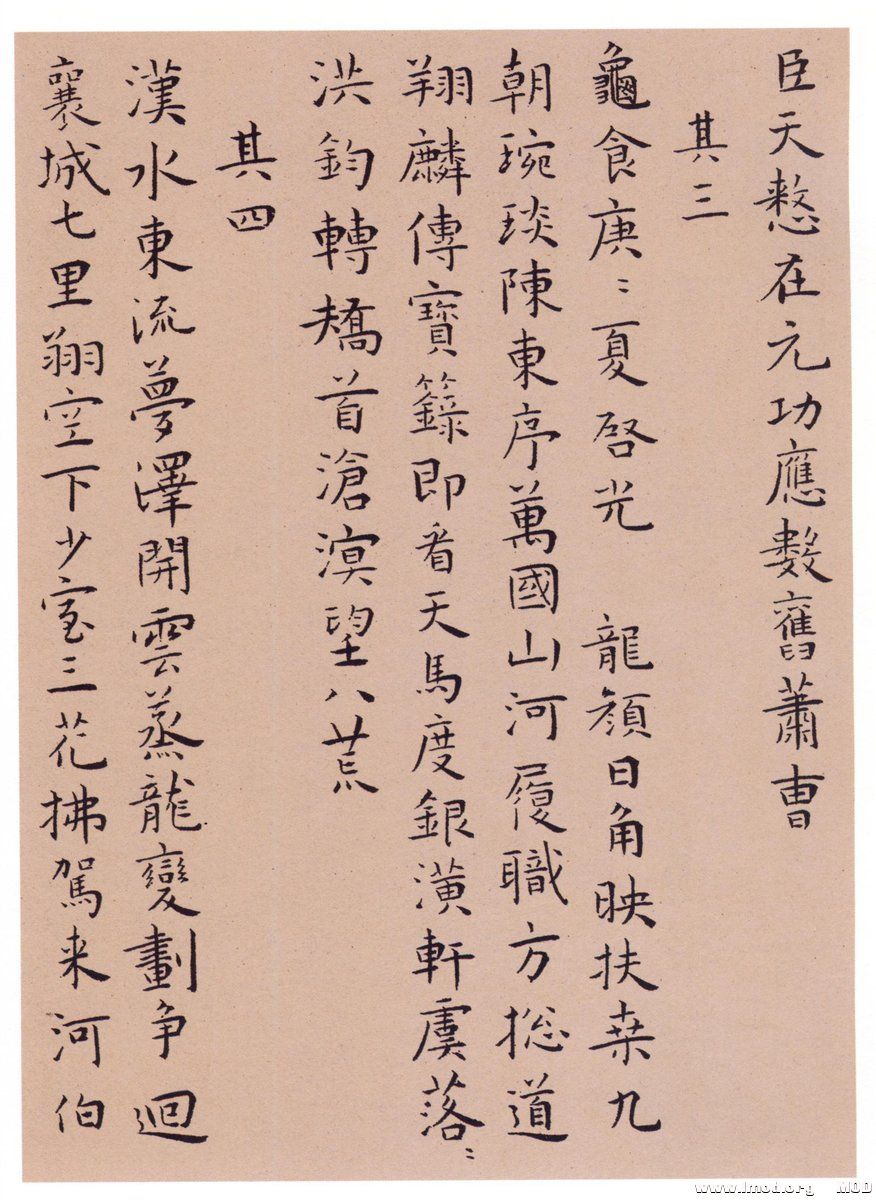 臣天憗在元功應數舊蕭曹
其三
龜食庚〻夏啓光 龍顔日角映扶桒九
朝琬琰陳東序萬國山河履職方揔道
翔麟傳寶籙即看天馬度銀潢軒虞落〻
洪鈞轉矯首滄溟望八荒
其四
漢水東流夢澤開雲蒸龍變劃争迴
襄城七里翔空下少室三花拂駕来河伯
www.lmod.org MOD